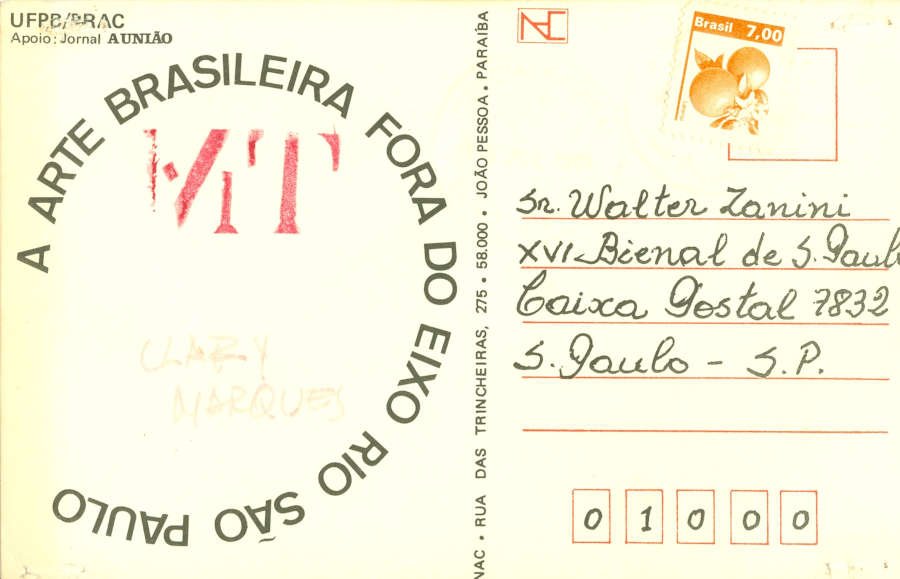 UFPB/PRAC
Apoio: Jornal A UNIÃO
A ARTE BRASILEIRA FORA DO EIXO RIO SÃO PAULO
MT
MARQUES
NAC • RUA DAS TRINCHEIRAS, 275 • 58.000 • JOÃO PESSOA • PARAÍBA
NAC
Brasil 7,00
Sr. Walter Zanini
XVI-Bienal de S. Paulo
Caixa Postal 7832
S. Paulo - S.P.
0 1 0 0 0